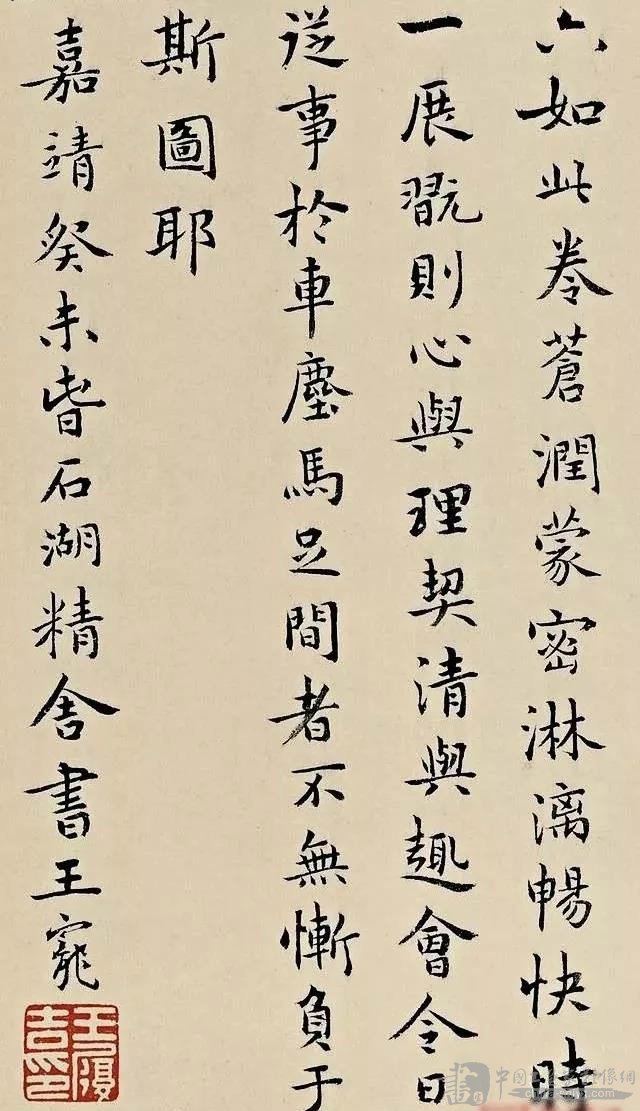 六如此卷蒼潤蒙密淋漓暢快時
一展翫則心與理契清與趣會今日
從事於車塵馬足間者不無慚負于
斯圖耶
嘉靖癸未春石湖精舍書王寵
王履吉印